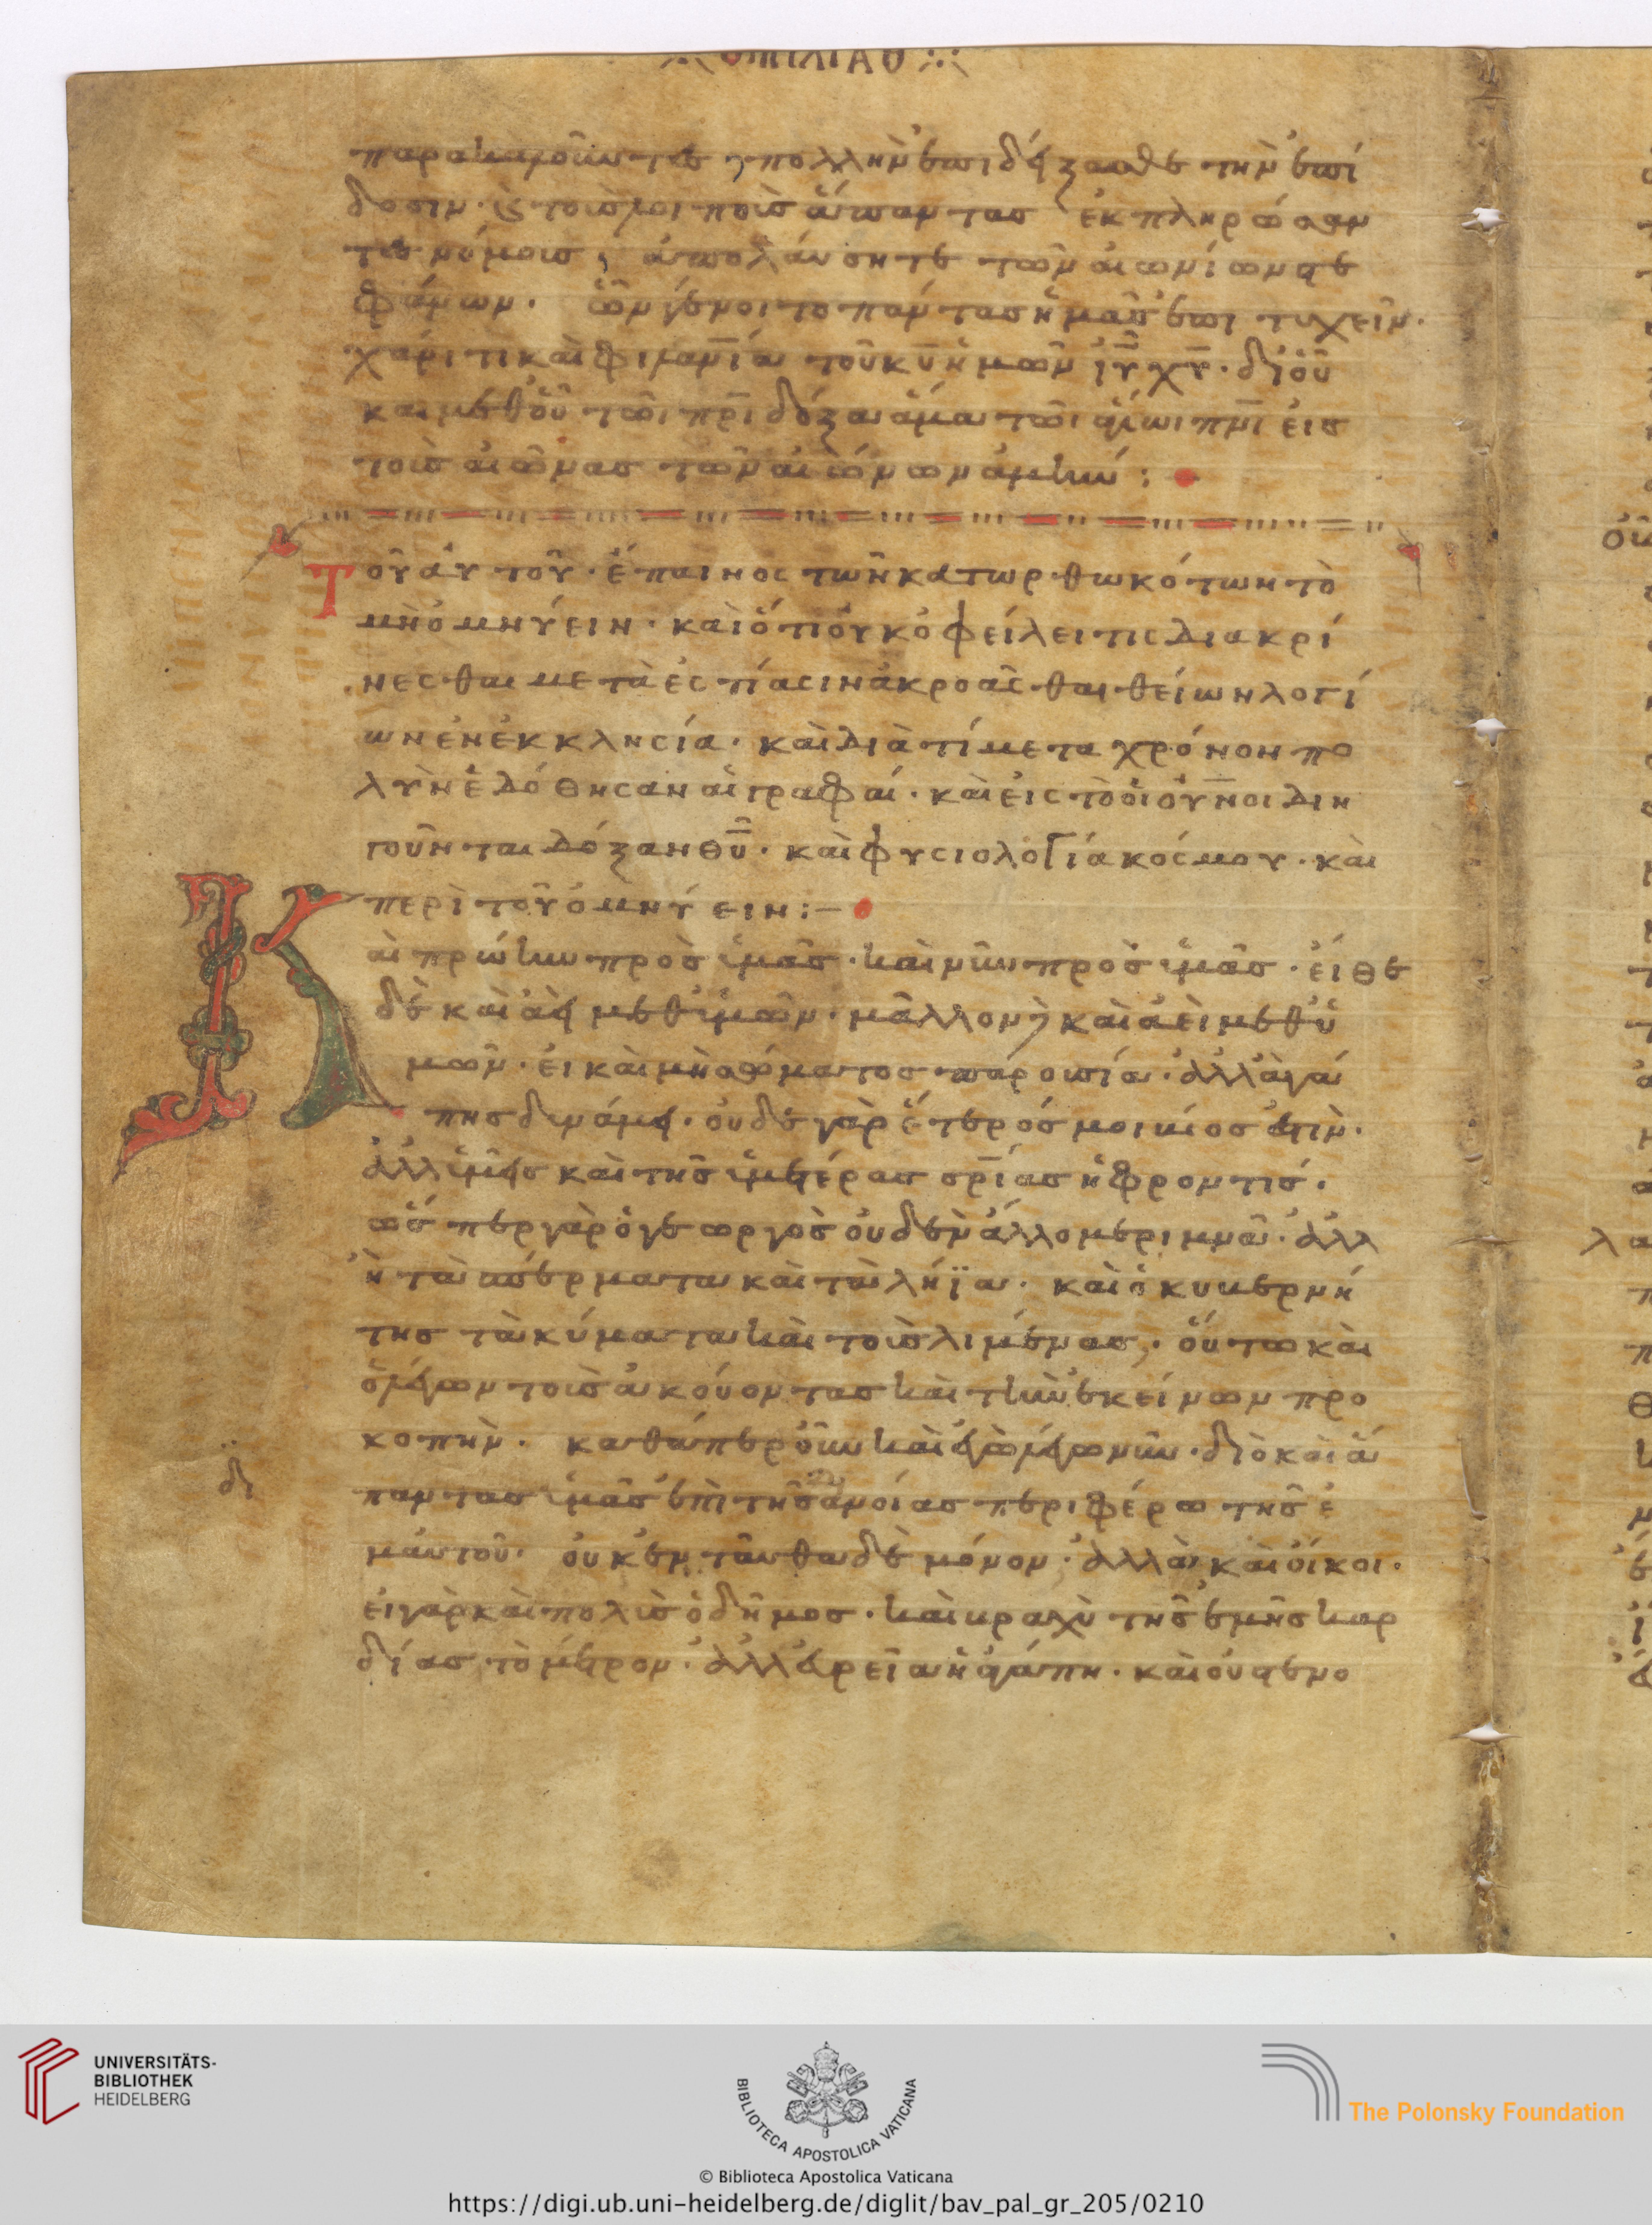 ὁμιλία θ
παρακαλοῦντες, πολλὴν ἐπιδέξασθε τὴν ἐπί
δοσιν· καὶ τοὺς λοιποὺς ἅπαντας ἐκπληρώσαν
τες νόμους, ἀπολαύσητε τῶν αἰωνίων στε
φάνων. ὧν γένοιτο πάντας ἡμᾶς ἐπιτυχεῖν.
χάριτι καὶ φιλανία τοῦ κυ ἡμῶν ιυ χυ. δι οὗ
καὶ μεθ οὗ τῶι πρι δόξα ἅμα τῶι ἁγίωι πνι εἰς
τοὺς αἰῶνας τῶν αἰώνων ἀμήν:
Τοῦ αὐτοῦ. ἔπαινος τῶν κατωρθωκότων τὸ
μὴ ὀμνύειν. καὶ ὅτι οὐκ ὀφείλει τις διακρί
νεσθαι μετὰ ἑστίασιν ἀκροᾶσθαι θείων λογί
ων ἐν ἐκκλησία. καὶ διὰ τί μετα χρόνον πο
λὺν ἐδόθησαν αἱ γραφαί. καὶ εἰς τὸ οἱ ουνοι διη
γοῦνται δόξαν θυ. καὶ φυσιολογία κόσμου. καὶ
περὶ τοῦ ὀμνύειν:–
Καὶ πρώην πρὸς ὑμᾶς. καὶ νῦν πρὸς ὑμᾶς. εἴθε
δὲ καὶ ἀεὶ μεθ ὑμῶν. μᾶλλον δὲ καὶ ἀεὶ μεθ ὑ
μῶν. εἰ καὶ μὴ σώματος παρουσία. ἀλλ ἀγά
πης δυνάμει. οὐδὲ γὰρ ἕτερός μοι βίος ἐστὶν.
ἀλλ ὑμεῖς καὶ τῆς ὑμετέρας σριας ἡ φροντίς.
ὥσπερ γὰρ ὁ γεωργὸς οὐδὲν ἄλλο μεριμνᾶ. ἀλλ
ἢ τὰ σπέρματα καὶ τὰ λήϊα. καὶ ὁ κυβερνή
της τὰ κύματα καὶ τοὺς λιμένας. οὕτω καὶ
ὁ λέγων τοὺς ἀκούοντας καὶ τὴν ἐκείνων προ
κοπήν. καθάπερ οὖν καὶ ἐγὼ λέγω νῦν. διὸ καὶ ἅ
παντας ὑμᾶς ἐπὶ τῆς διανοίας περιφέρω τῆς ἐ
δι
μαυτοῦ. οὐκ ἐνταῦθα δὲ μόνον. ἀλλὰ καὶ οἴκοι.
εἰ γὰρ καὶ πολὺς ὁ δῆμος. καὶ βραχὺ τῆς ἐμῆς καρ
δίας τὸ μέτρον. ἀλλ εὐρεῖα ἡ ἀγάπη. καὶ οὐ στενο
UNIVERSITÄTS-
BIBLIOTHEK
HEIDELBERG
BIBLIOTECA APOSTOLICA VATICANA
© Biblioteca Apostolica Vaticana
The Polonsky Foundation
https://digi.ub.uni-heidelberg.de/diglit/bav_pal_gr_205/0210